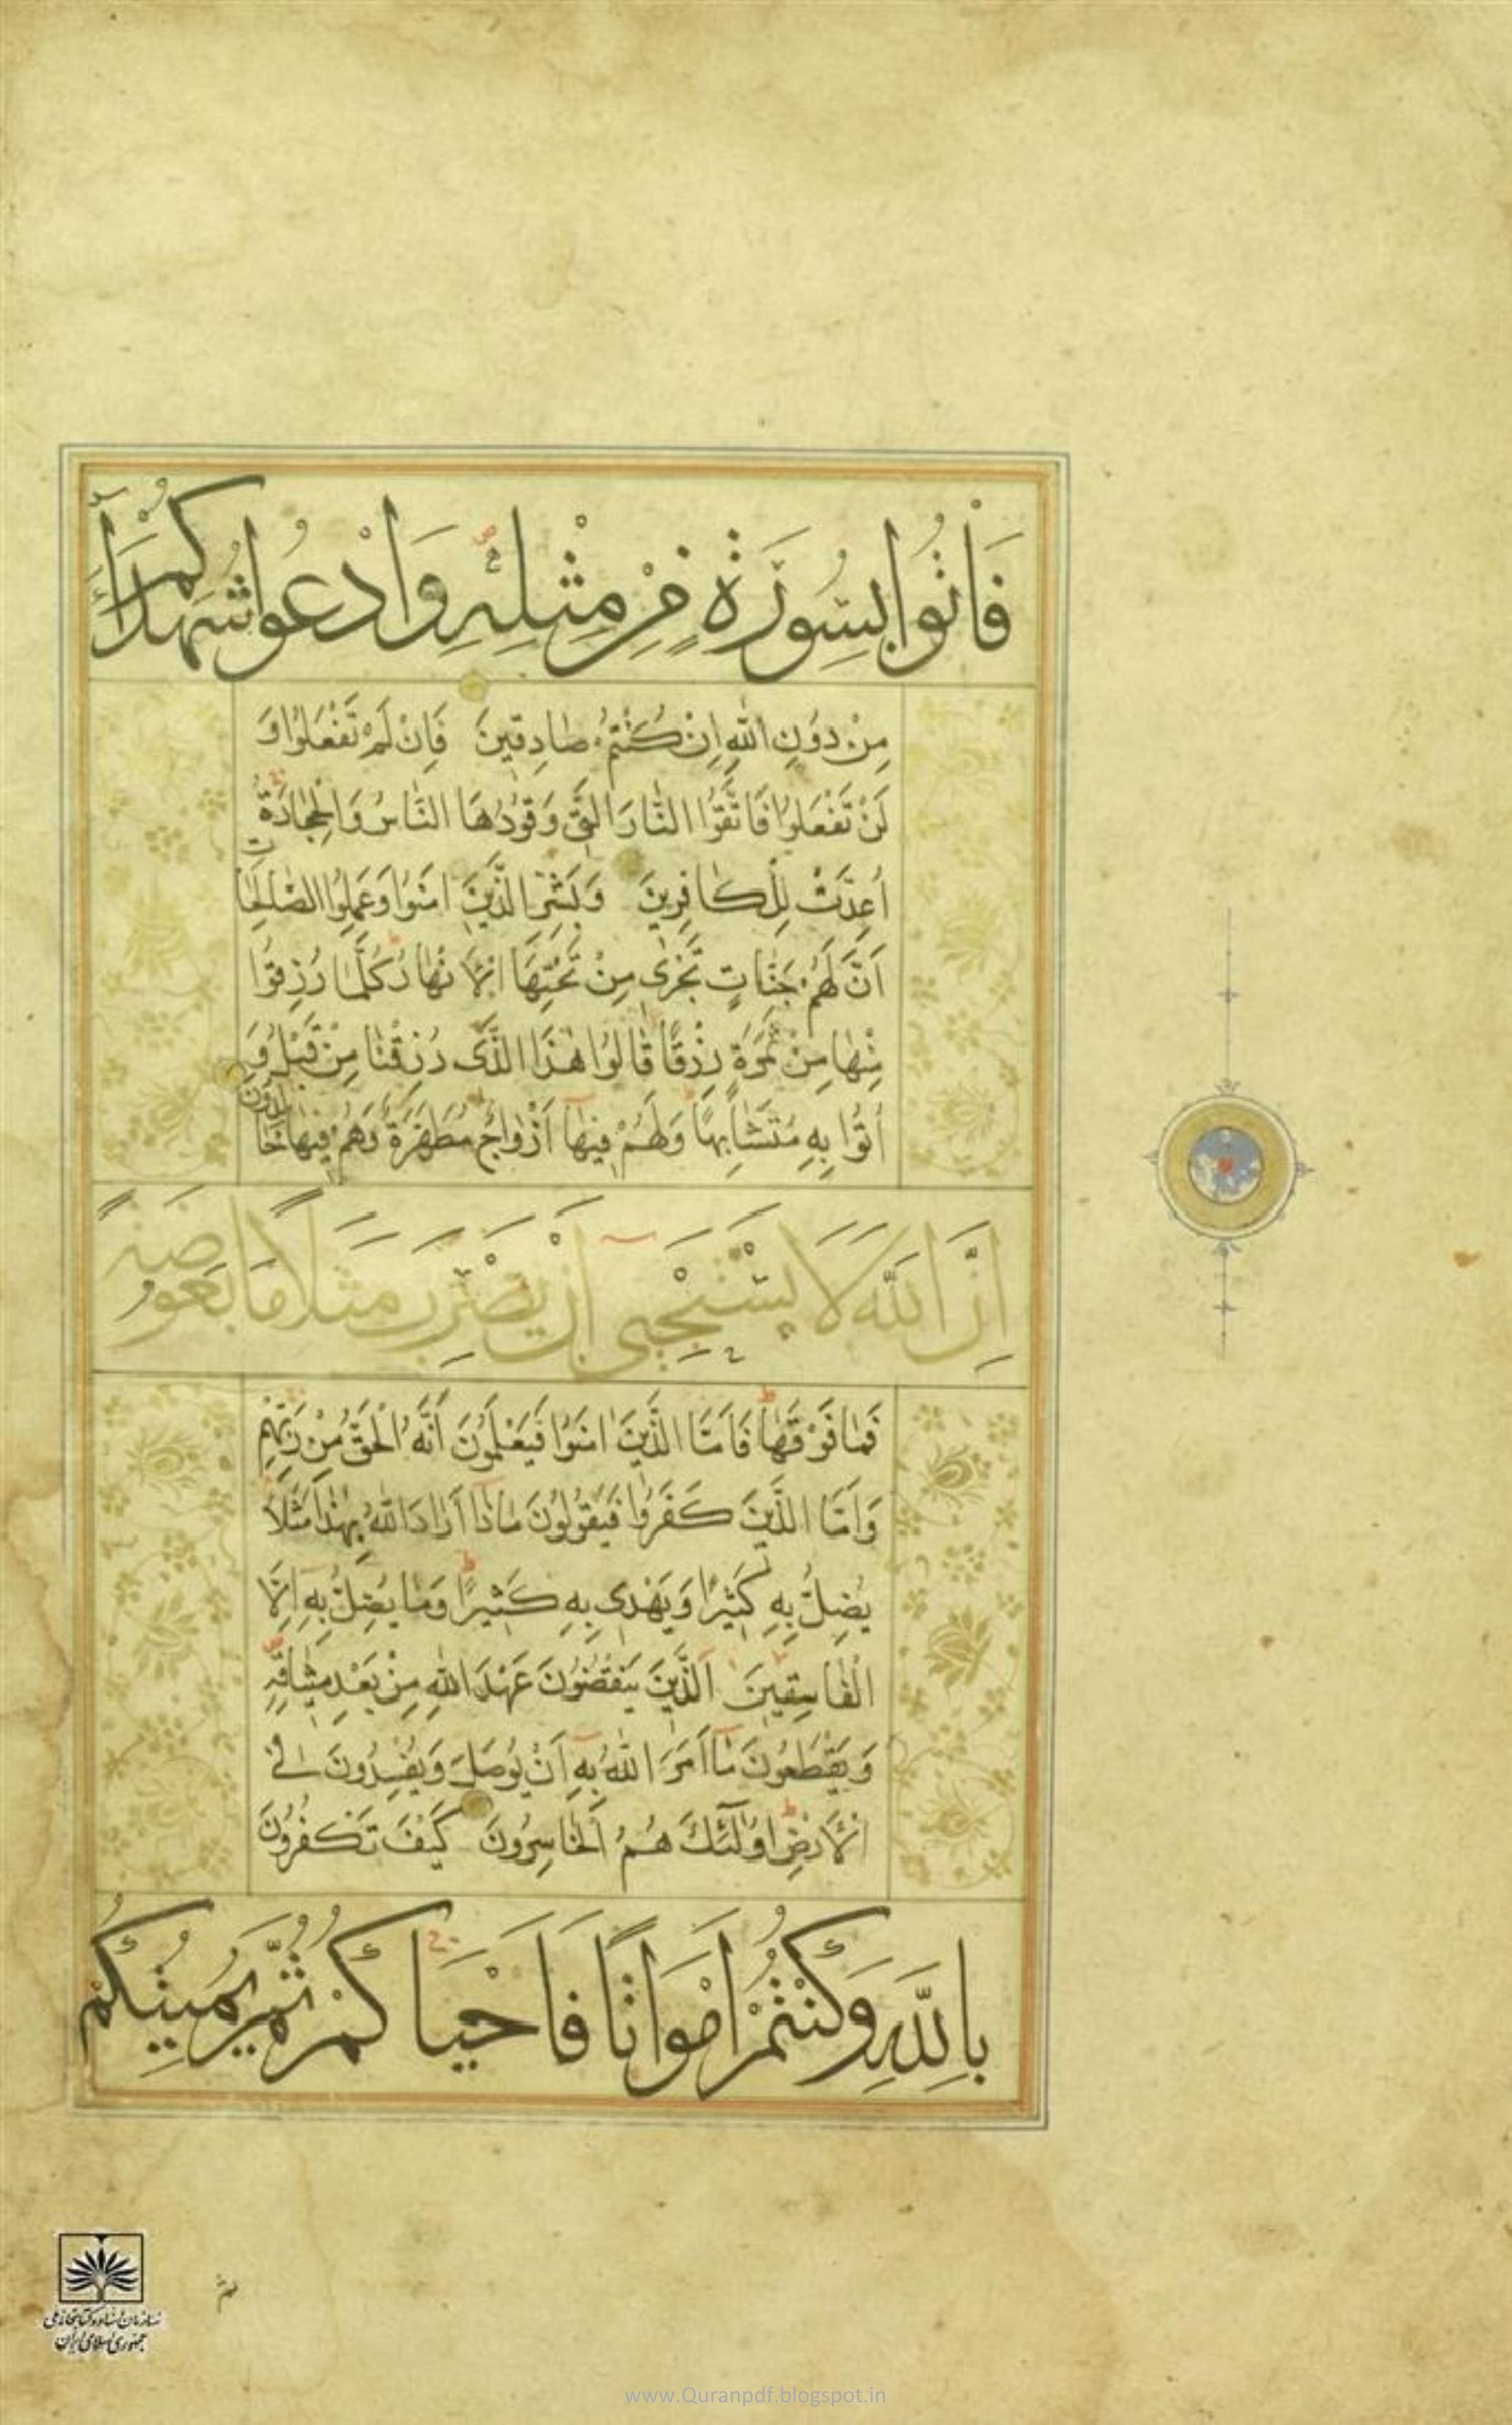 فَأْتُوا بِسُورَةٍ مِنْ مِثْلِهِ وَادْعُوا شُهَدَاءَكُمْ
مِنْ دُونِ اللّٰهِ اِنْ كُنْتُمْ صَادِقِينَ فَاِنْ لَمْ تَفْعَلُوا وَ
لَنْ تَفْعَلُوا فَاتَّقُوا النَّارَ الَّتِى وَقُودُهَا النَّاسُ وَالْحِجَارَةُ
اُعِدَّتْ لِلْكَافِرِينَ وَبَشِّرِ الَّذِينَ اٰمَنُوا وَعَمِلُوا الصَّالِحَاتِ
اَنَّ لَهُمْ جَنَّاتٍ تَجْرِى مِنْ تَحْتِهَا الْاَنْهَارُ كُلَّمَا رُزِقُوا
مِنْهَا مِنْ ثَمَرَةٍ رِزْقًا قَالُوا هٰذَا الَّذِى رُزِقْنَا مِنْ قَبْلُ وَ
اُتُوا بِهِ مُتَشَابِهًا وَلَهُمْ فِيهَا اَزْوَاجٌ مُطَهَّرَةٌ وَهُمْ فِيهَا خَالِدُونَ
اِنَّ اللّٰهَ لَا يَسْتَحْيِى اَنْ يَضْرِبَ مَثَلًا مَا بَعُوضَةً
فَمَا فَوْقَهَا فَاَمَّا الَّذِينَ اٰمَنُوا فَيَعْلَمُونَ اَنَّهُ الْحَقُّ مِنْ رَبِّهِمْ
وَاَمَّا الَّذِينَ كَفَرُوا فَيَقُولُونَ مَاذَا اَرَادَ اللّٰهُ بِهٰذَا مَثَلًا
يُضِلُّ بِهِ كَثِيرًا وَيَهْدِى بِهِ كَثِيرًا وَمَا يُضِلُّ بِهِ اِلَّا
الْفَاسِقِينَ اَلَّذِينَ يَنْقُضُونَ عَهْدَ اللّٰهِ مِنْ بَعْدِ مِيثَاقِهِ
وَيَقْطَعُونَ مَا اَمَرَ اللّٰهُ بِهِ اَنْ يُوصَلَ وَيُفْسِدُونَ فِى
الْاَرْضِ اُولٰئِكَ هُمُ الْخَاسِرُونَ كَيْفَ تَكْفُرُونَ
بِاللّٰهِ وَكُنْتُمْ اَمْوَاتًا فَاَحْيَاكُمْ ثُمَّ يُمِيتُكُمْ
سازمان اسناد و کتابخانه ملی
جمهوری اسلامی ایران
www.Quranpdf.blogspot.in